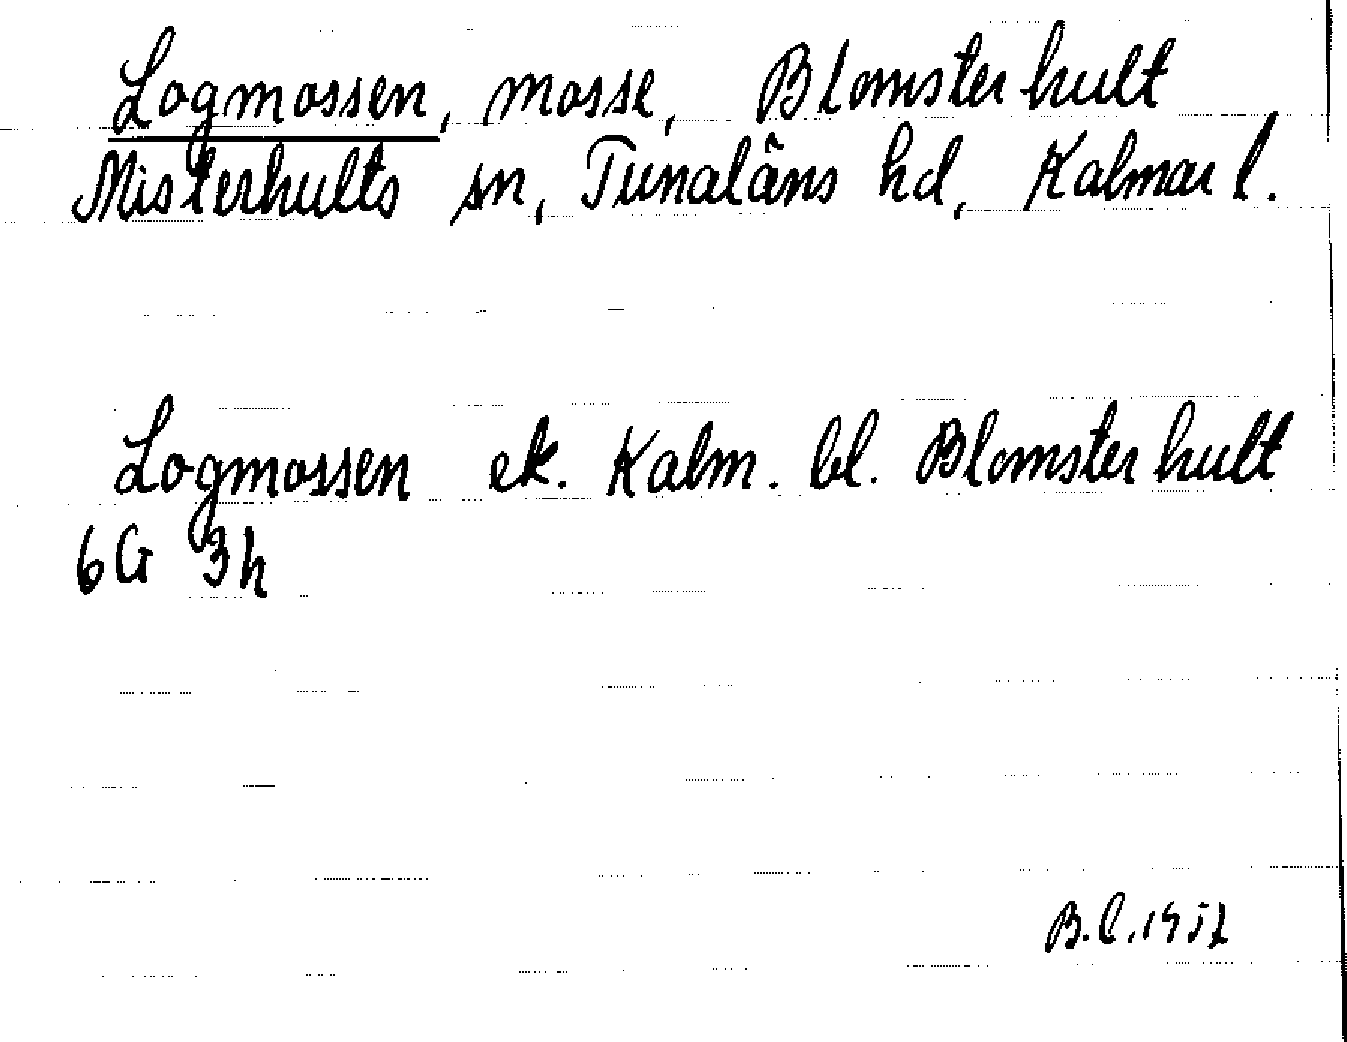 Logmossen, mosse, Blomsterhult
Misterhults sn, Tunaläns hd, Kalmar l.
Logmossen ek. Kalm. bl. Blomsterhult
6G 3h
B.L. 1952